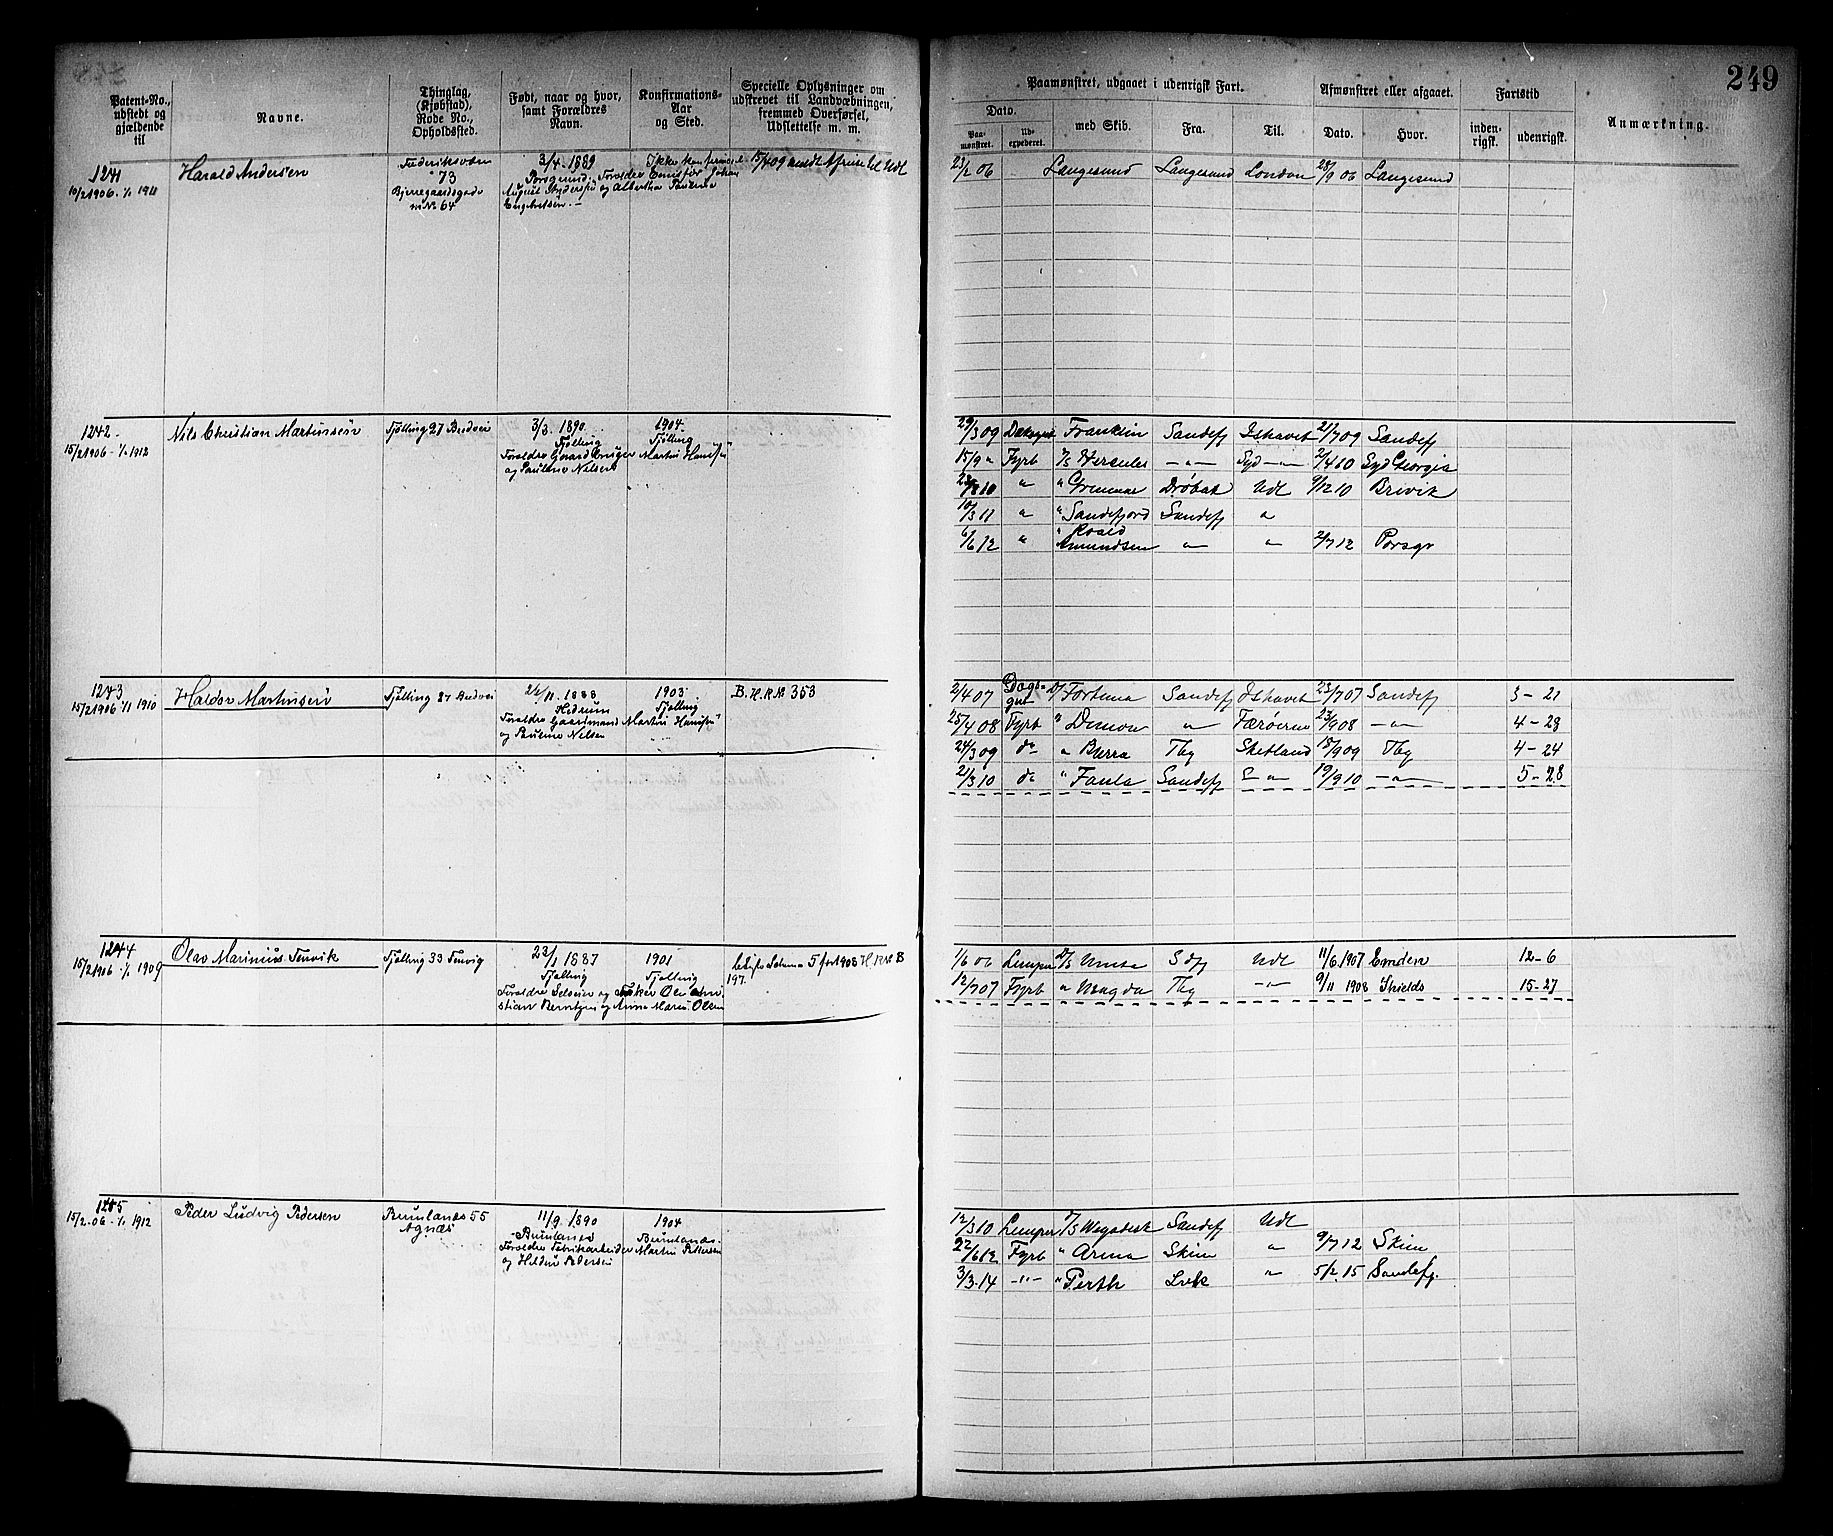 249
Patent-No., udstedt og gjældende til
Navne.
Thinglag, (Kjøbstad), Rode No., Opholdssted.
Født, naar og hvor, samt Forældres Navn.
Konfirmations-Aar og Sted.
Specielle Oplysninger om udskrevet til Landværningen, fremmed Overførsel, Udslettelse m. m.
Paamønstret, udgaaet i udenrigsk Fart.
Dato.
Paa-mønstret.
Ud-expederet.
med Skib.
Fra.
Til.
Afmønstret eller afgaaet.
Dato.
Hvor.
Fartstid
inden-rigsk.
udenrigsk.
Anmærkning.
1241
10/2 1906 - 1/1 1911
Harald Andersen
Frederiksværn
73
Bjerregaardsgade
m No 64
3/4 - 1889
Porsgrund. Forældre
August Andersen og Albertha Paulena
Engebretsen. -
15/4 09
23/2 06 Langesund Langesund London 28/9 06 Langesund
1242
15/2 1906 - 1/1 1912
Nils Christian Martinsen
Tjølling 27
3/8. 1890.
Tjølling
Forældre Martin Hansen
og Pauline Nilsen
1904.
Tjølling
29/3 09 Franklin Sandefj Ishavet 21/7 09 Sandefj
15/9 " Fyrb Hercules -"- Syd -"- Syd Georgia
" " Drøbak Udl 9/12 10 Brevik
10/3 11 " " Sandefjord Sandefj "
6/6 12 " " Roald Amundsen -"- -"- 2/7 12 Porsgr
1243
15/2 1906 1/1 1910
Haldor Martinsen
Tjølling 27
24/11. 1888
Hedrum
Forældre Gaardmand Martin Hansen
og Pauline Nilsen
1903.
Tjølling
B. H. R No 353
2/4 07 Dags-gut Fortuna Sandefj Ishavet 23/7 07 Sandefj 3 - 21
25/4 08 Fyrb " " Færøerne 23/9 08 -"- 4 - 28
24/3 09 do " Burra Tbg Shetland 18/9 09 Tbg 4 - 24
2/3 10 do " Foula Sandefj S -"- 19/9 10 -"- 5 - 28
1244
15/2 1906 - 1/1 1909
Olav Marinius Tenvik
Tjølling 33 Tenvig
23/1 1887
Tjølling
Forældre Selveier og Fisker Ole Chri-
stian Berntzen og Anna Maria Olsen
1901
Tjølling
197.
1/6 06 Lemper Sdfj Udl 11/6 1907 Emden 12 - 6
12/7 07 Fyrb " Magda Tbg -"- 9/11 1908 Shields 15 - 27
1245
15/2.06 - 1/1 1912
Peder Ludvig Pedersen
Brunlanes 55
Agnæs
11/9. 1890
Brunlanes
Forældre Fabrikarbeider Martin Pettersen
og Helene Pedersen
1904
Brunlanes.
12/3 10 Lemper Sandefj Udl
22/6 12 Fyrb " Arma Skien " 9/7 12 Skien
3/3.14 -"- " Perth Lvk " 5/2.15 Sandefj.